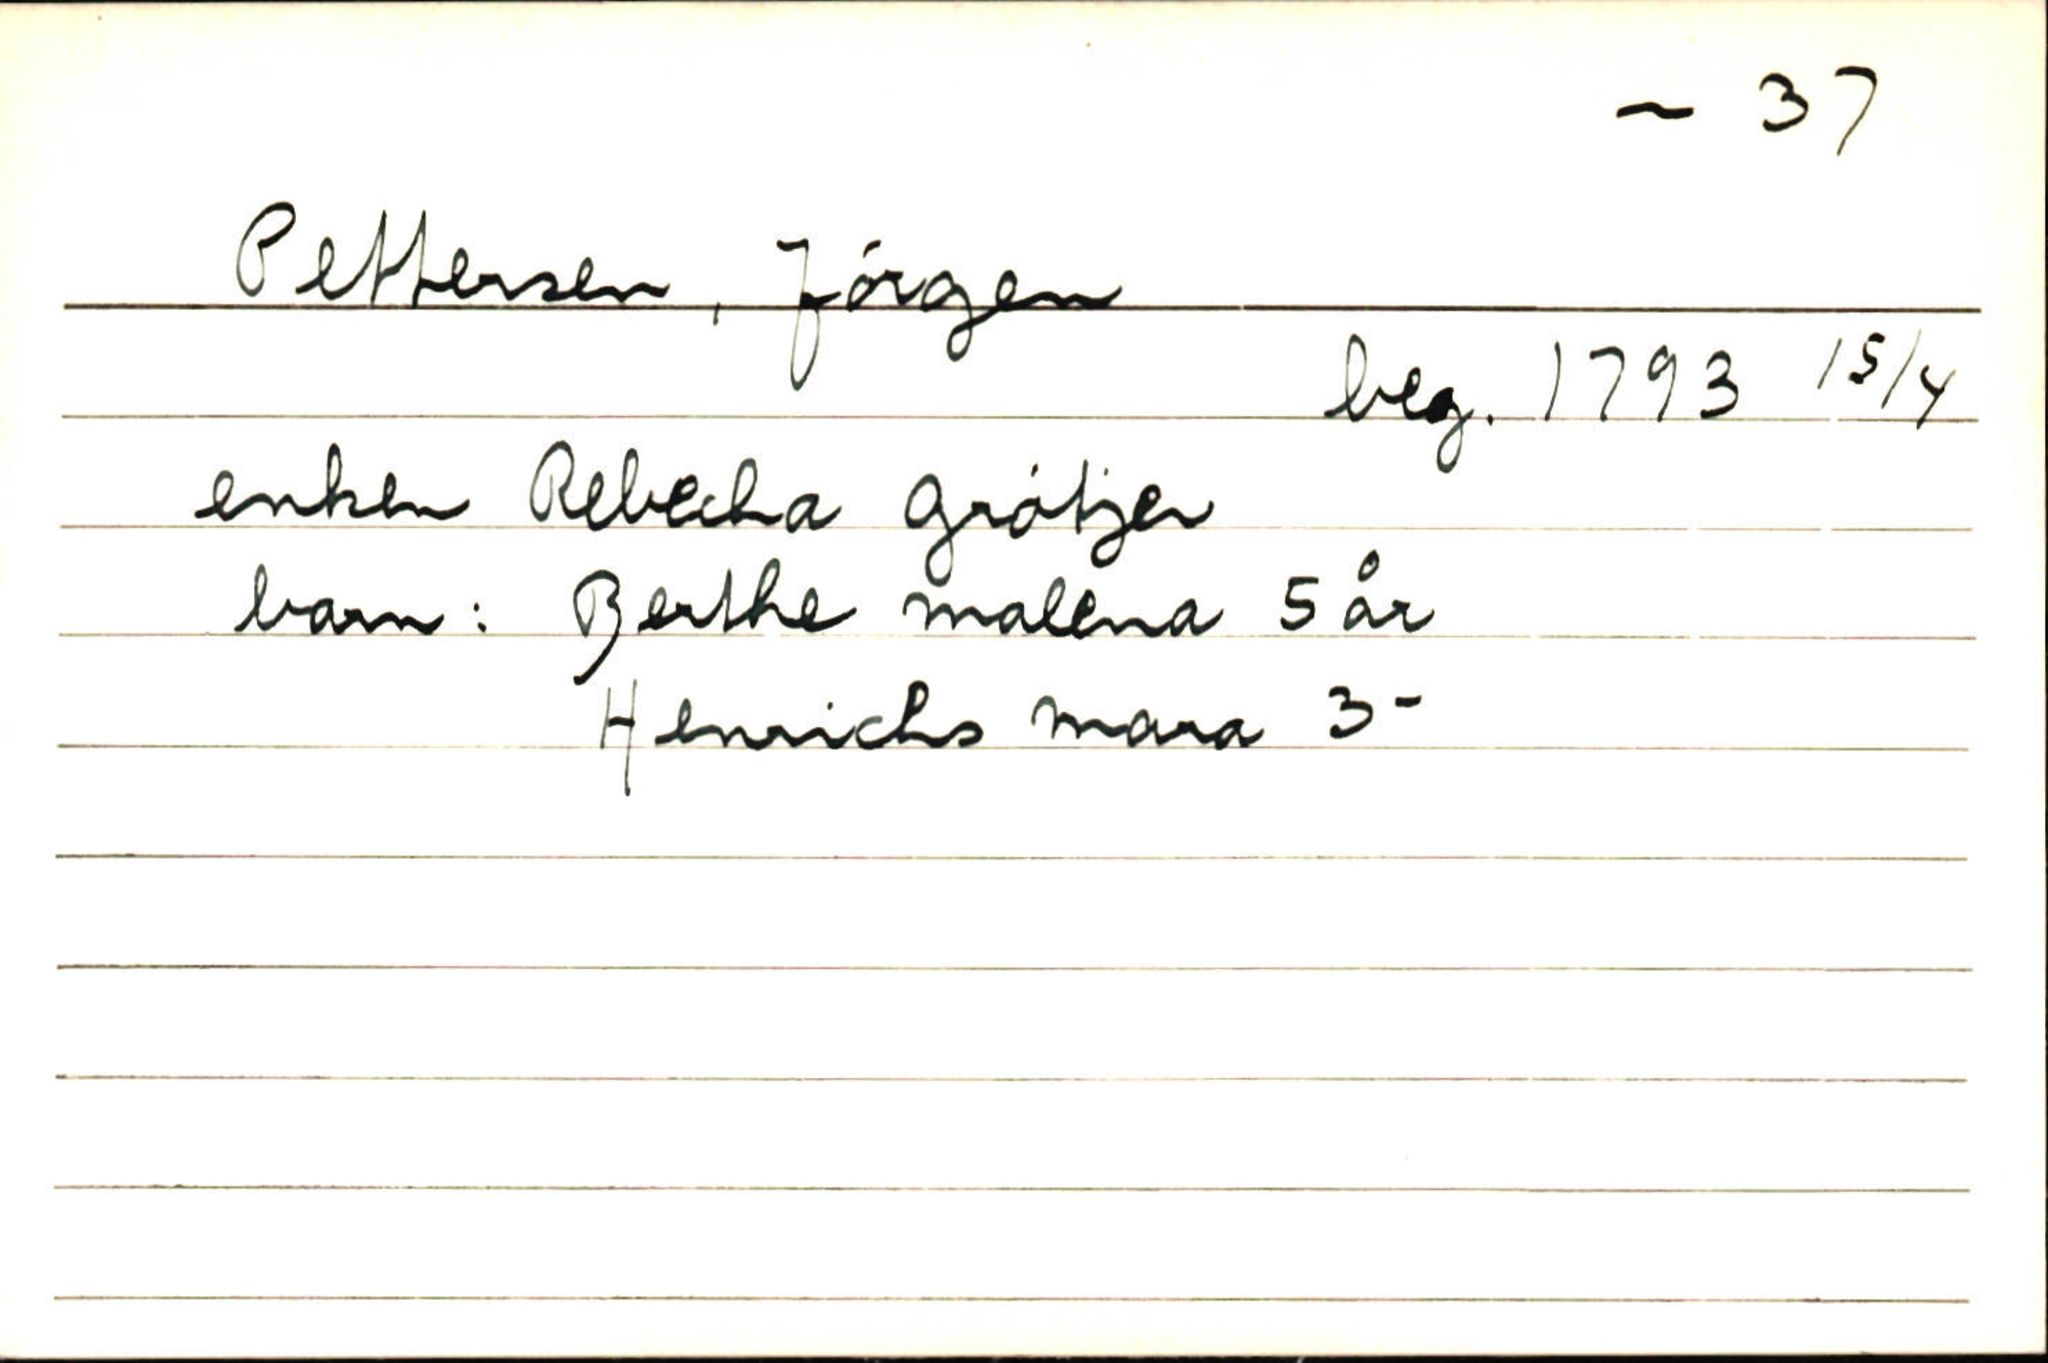 ~ 37
Pettersen, Jörgen
beg. 1793 15/4
enken Rebecha Grötjer
barn: Berthe Malena 5 år
Henrichs Mara 3-